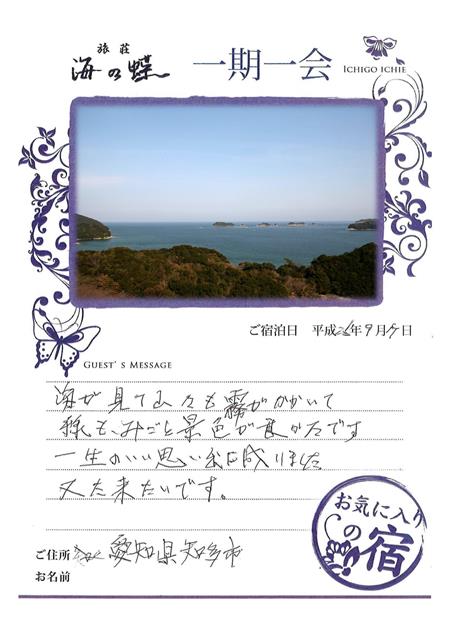 旅荘
海の蝶
一期一会
ICHIGO ICHIE
ご宿泊日 平成 年9月 日
GUEST'S MESSAGE
海が見て山々も霧がかかいて
みごと景色が良かたです
一生のいい思い 成りました
又た来たいです。
お気に入り
の宿
ご住所 愛知県知多市
お名前